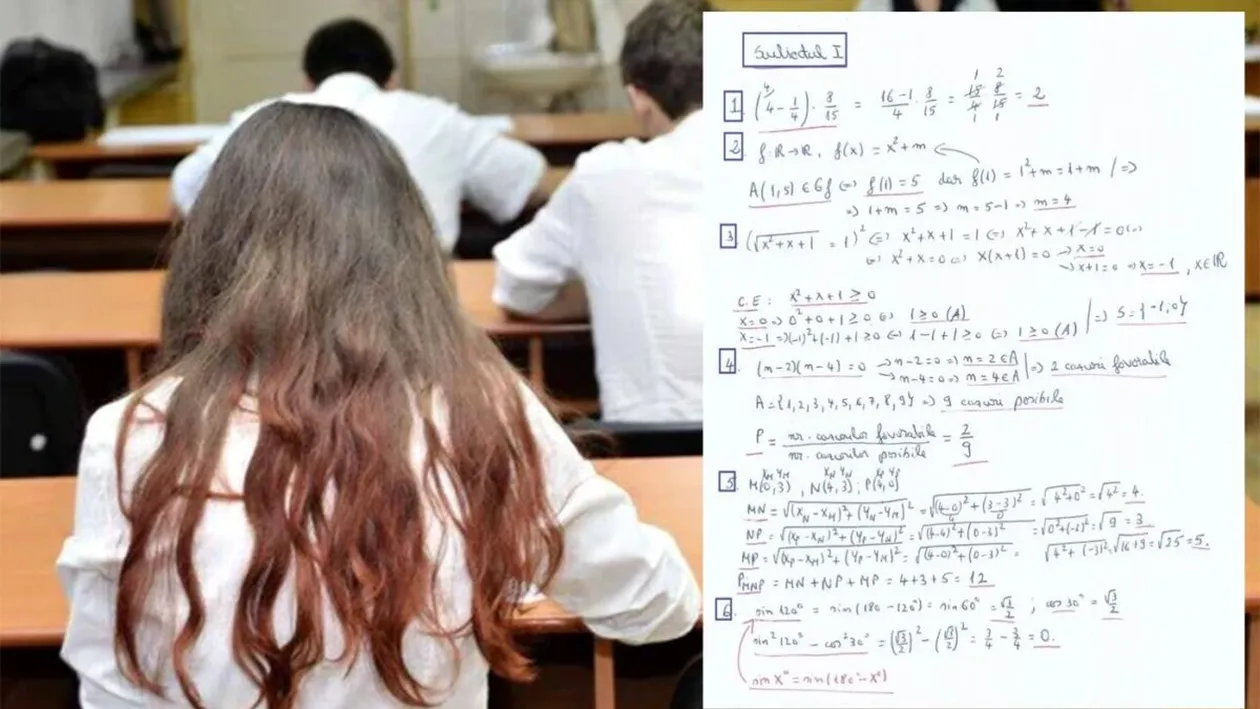 Subiectul I
1. (4 - 1/4) · 8/15 = (16-1)/4 · 8/15 = 15/4 · 8/15 = 2
2. f: ℝ→ℝ, f(x) = x²+m
A(1,5) ∈ Gf ⇔ f(1) = 5 dar f(1) = 1²+m = 1+m / ⇒
⇒ 1+m = 5 ⇒ m = 5-1 ⇒ m = 4
3. (√(x²+x+1) = 1)² ⇔ x²+x+1 = 1 ⇔ x²+x+1-1 = 0 ⇔
⇔ x²+x = 0 ⇔ x(x+1) = 0 → x = 0
→ x+1 = 0 ⇒ x = -1, x∈ℝ
C.E: x²+x+1 ≥ 0
x=0 ⇒ 0²+0+1 ≥ 0 ⇔ 1 ≥ 0 (A)
x=-1 ⇒ (-1)²+(-1)+1 ≥ 0 ⇔ 1-1+1 ≥ 0 ⇔ 1 ≥ 0 (A) | ⇒ S = {-1, 0}
4. (n-2)(n-4) = 0 → n-2=0 ⇒ n = 2 ∈ A
→ n-4=0 ⇒ n = 4 ∈ A | ⇒ 2 cazuri favorabile
A = {1, 2, 3, 4, 5, 6, 7, 8, 9} ⇒ 9 cazuri posibile
P = nr. cazurilor favorabile / nr. cazurilor posibile = 2/9
5. M(0,3), N(4,3); P(4,0)
MN = √((xN-xM)²+(yN-yM)²) = √((4-0)²+(3-3)²) = √(4²+0²) = √4² = 4.
NP = √((xP-xN)²+(yP-yN)²) = √((4-4)²+(0-3)²) = √(0²+(-3)²) = √9 = 3
MP = √((xP-xM)²+(yP-yM)²) = √((4-0)²+(0-3)²) = √(4²+(-3)²) = √(16+9) = √25 = 5.
P_MNP = MN + NP + MP = 4+3+5 = 12
6. sin 120° = sin(180-120°) = sin 60° = √3/2 ; cos 30° = √3/2
sin² 120° - cos² 30° = (√3/2)² - (√3/2)² = 3/4 - 3/4 = 0.
sin x° = sin(180° - x°)